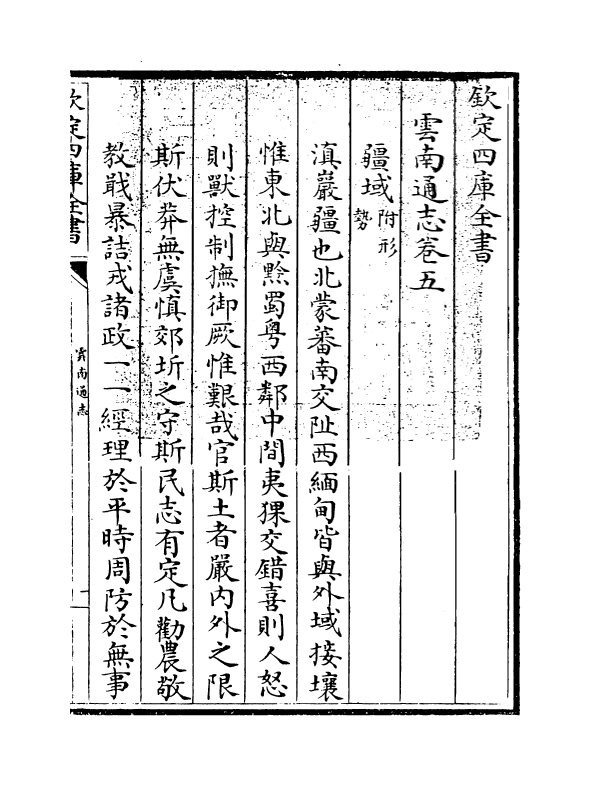 欽定四庫全書
雲南通志卷五
疆域附形勢
滇巖疆也北蒙蕃南交阯西緬甸皆與外域接壤
惟東北與黔蜀粤西鄰中間夷猓交錯喜則人怒
則獸控制撫御厥惟艱哉官斯土者嚴内外之限
斯伏莽無虞慎郊圻之守斯民志有定凡勸農敬
教戢暴詰戎諸政一一經理於平時周防於無事
欽定四庫全書
雲南通志